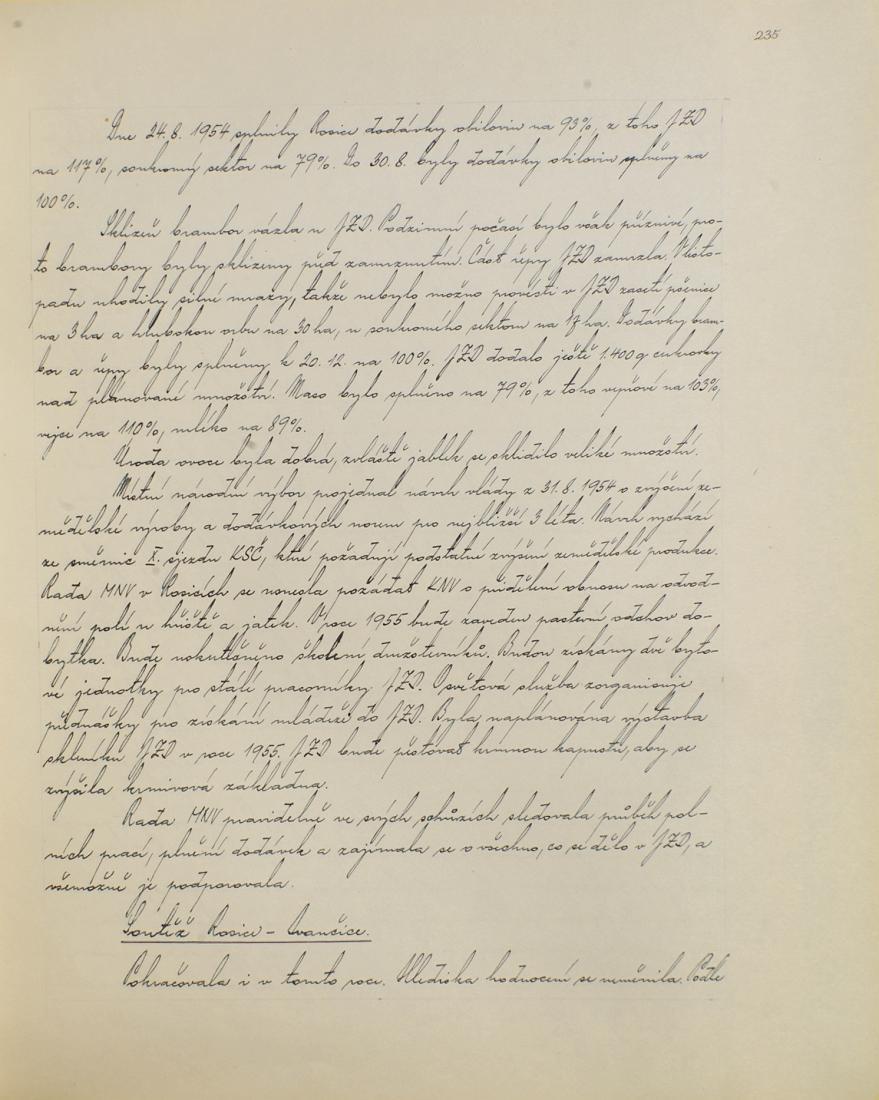 235
Dne 24. 8. 1954 splnily Rosice dodávky obilovin na 93%, z toho JZD
na 117%, soukromý sektor na 79%. Do 30. 8. byly dodávky obilovin splněny na
100%.
Sklizeň brambor vázla u JZD. Podzimní počasí bylo však příznivé, pro-
to brambory byly sklizeny před zamrznutím. Část řepy JZD zamrzla. V listo-
padu uhodily silné mrazy, takže nebylo možno provésti v JZD zasetí pšenice
na 3 ha a hlubokou orbu na 30 ha, u soukromého sektoru na 17 ha. Dodávky bram-
bor a řepy byly splněny k 20. 12. na 100%. JZD dodalo ještě 1.400 q cukrovky
nad plánované množství. Maso bylo splněno na 79%, z toho vepřové na 103%,
vejce na 110%, mléko na 89%.
Úroda ovoce byla dobrá, zvláště jablek se sklidilo veliké množství.
Místní národní výbor projednal návrh vlády z 31. 8. 1954 o zvýšení ze-
mědělské výroby a dodávkových norem pro nejbližší 3 léta. Návrh vychází
ze směrnic X. sjezdu KSČ, které požadují podstatné zvýšení zemědělské produkce.
Rada MNV v Rosicích se usnesla požádat KNV o přidělení obnosu na odvod-
nění polí u hřiště a jatek. V roce 1955 bude zaveden pastevní odchov do-
bytka. Bude uskutečněno školení družstevníků. Budou získány dvě byto-
vé jednotky pro stálé pracovníky JZD. Osvětová služba zorganisuje
přednášky pro získání mládeže do JZD. Byla naplánována výstavba
skleníku JZD v roce 1955. JZD bude pěstovat krmnou kapustu, aby se
zvýšila krmivová základna.
Rada MNV pravidelně ve svých schůzích sledovala průběh pol-
ních prací, plnění dodávek a zajímala se o všechno, co se dělo v JZD, a
všemožně je podporovala.
Soutěž Rosice - Ivančice.
Pokračovala i v tomto roce. Hlediska hodnocení se neměnila. Podle